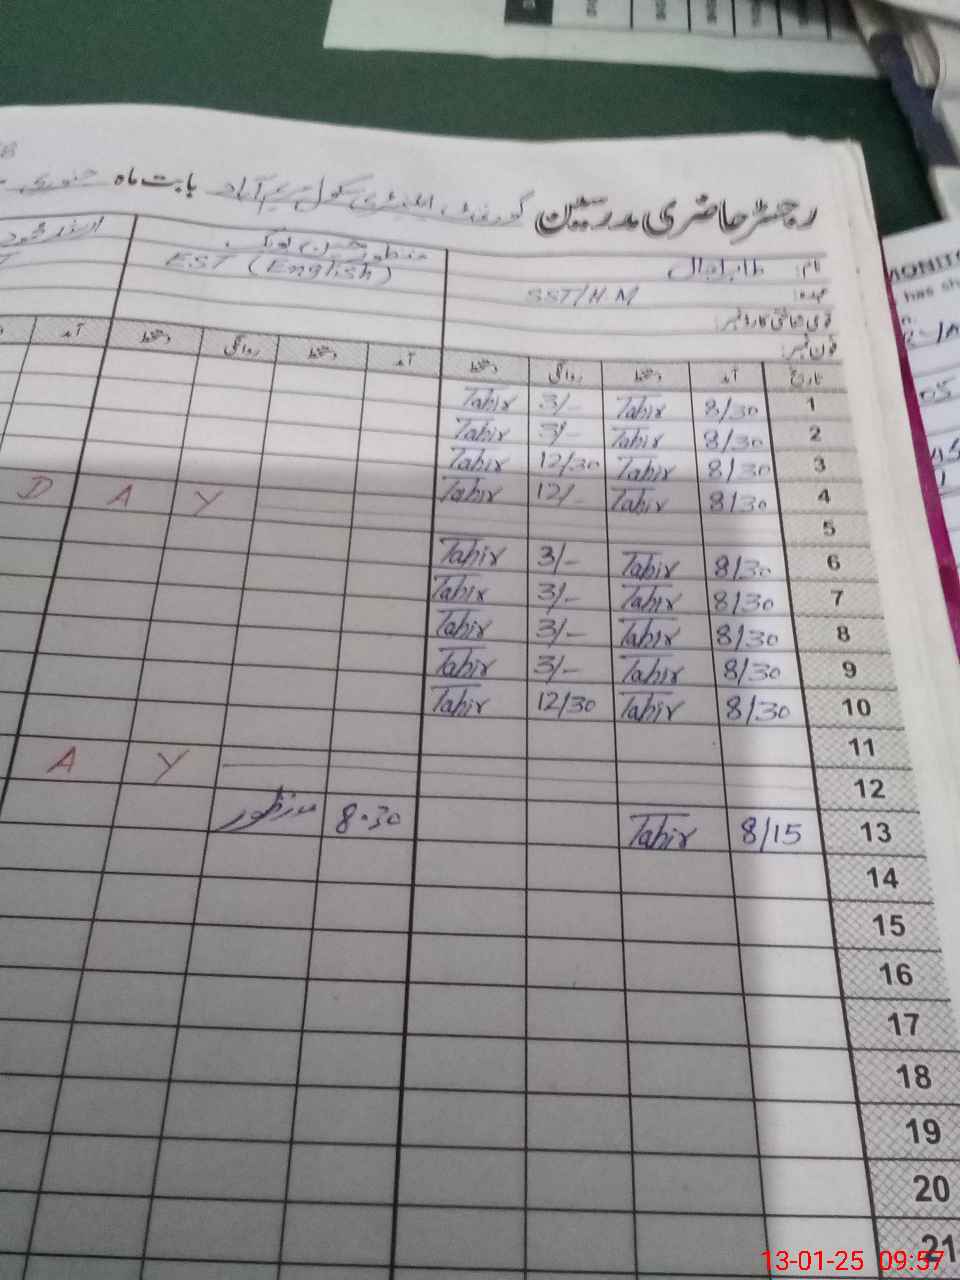 رجسٹر حاضری مدرسین گورنمنٹ ایلیمنٹری سکول مریم آباد بابت ماہ جنوری
نام: طاہر اقبال منظور حسین
عہدہ: SST/H.M EST (English)
قومی شناختی کارڈ نمبر:
فون نمبر:
تاریخ آمد دستخط روانگی دستخط آمد دستخط روانگی دستخط آمد
1 8/30 Tahir 3/- Tahir
2 8/30 Tahir 3/- Tahir
3 8/30 Tahir 12/30 Tahir
4 8/30 Tahir 12/- Tahir
5 D A Y
6 8/30 Tahir 3/- Tahir
7 8/30 Tahir 3/- Tahir
8 8/30 Tahir 3/- Tahir
9 8/30 Tahir 3/- Tahir
10 8/30 Tahir 12/30 Tahir
11
12 A Y
13 8/15 Tahir 8.30 منظور
14
15
16
17
18
19
20
21
MONITO
has sh
05
13-01-25 09:57